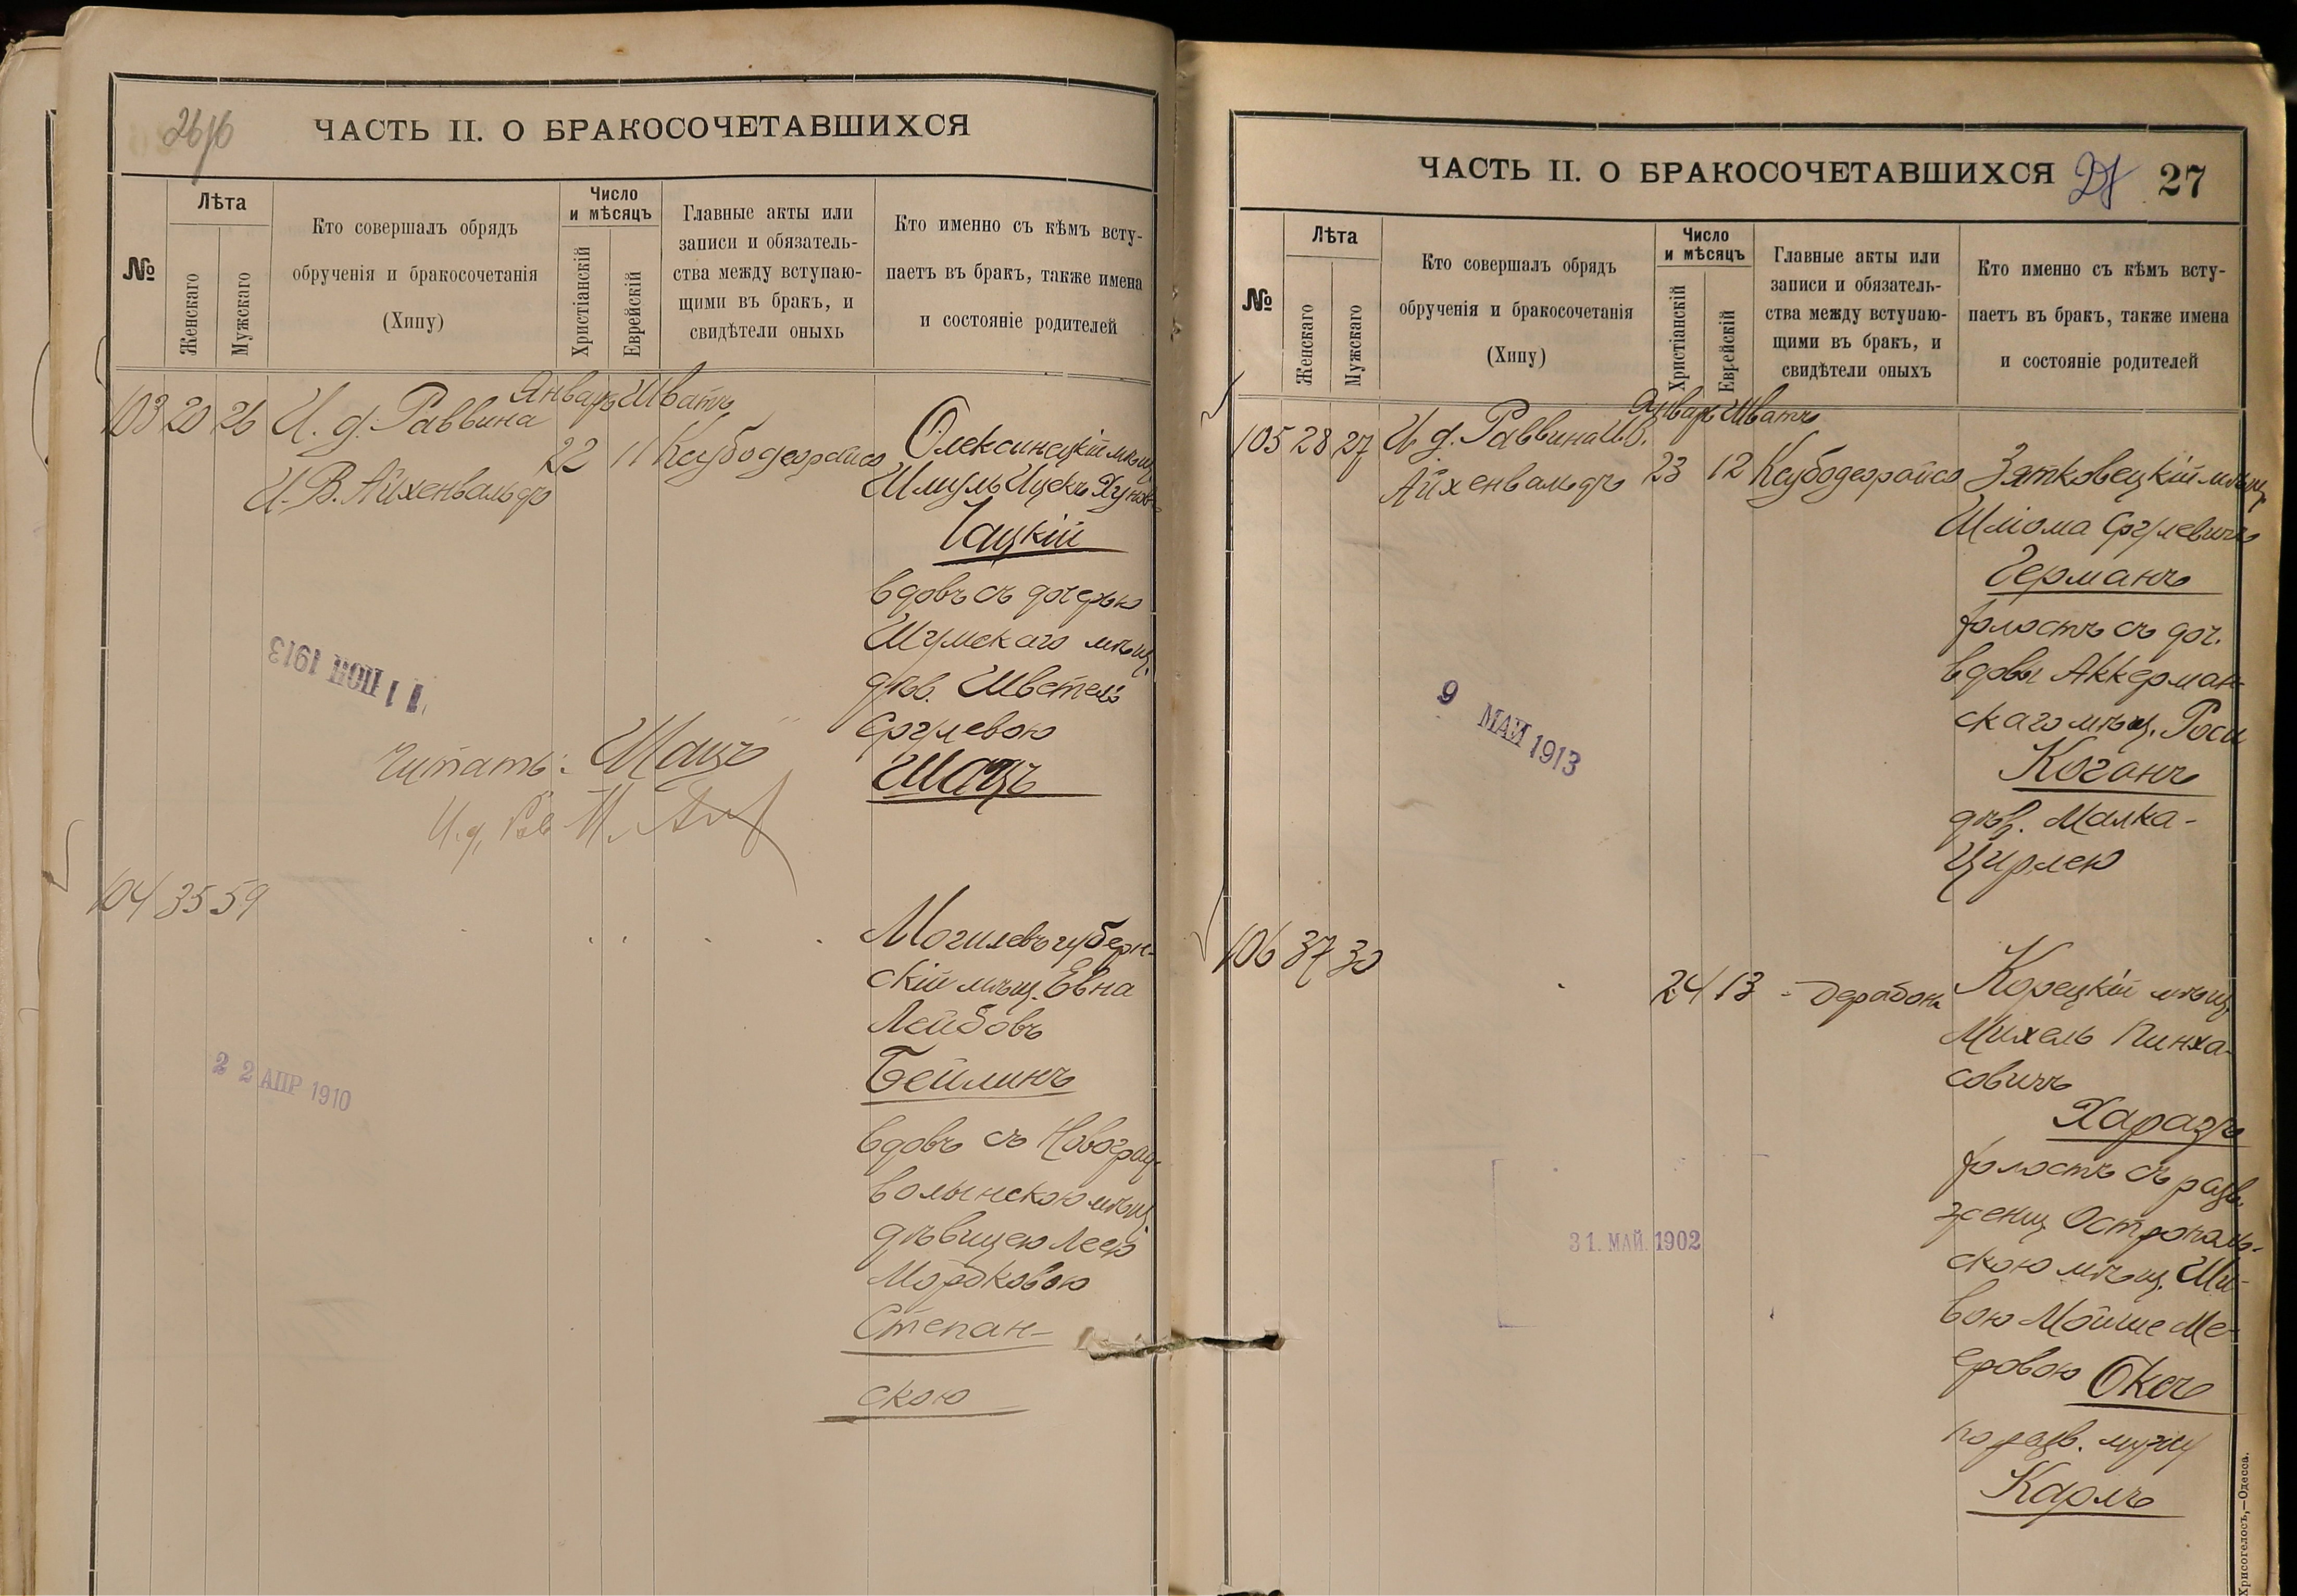 26 об
ЧАСТЬ II. О БРАКОСОЧЕТАВШИХСЯ
№
Лѣта
Женскаго
Мужскаго
Кто совершалъ обрядъ
обрученія и бракосочетанія
(Хипу)
Число
и мѣсяцъ
Христіанскій
Еврейскій
Главные акты или
записи и обязатель-
ства между вступаю-
щими въ бракъ, и
свидѣтели оныхъ
Кто именно съ кѣмъ всту-
паетъ въ бракъ, также имена
и состояніе родителей
Январь Шватъ
103 20 26 И. д. Раввина
И. В. Айхенвальдъ
22 11 Ксубодеорайсо
Олексинецкій мѣщ.
Шмуль Ицекъ
Чацкій
вдовъ съ дочерью
Шумскаго мѣщ.
дѣв. Шветею
Срулевою
Шацъ
11 1913
Читать: Шацъ
И. д. Рав.
104 35 59
Могилевъ губерн-
скій мѣщ. Евна
Лейбовъ
Бейлинъ
вдовъ съ Новоград-
волынскою мѣщ.
дѣвицею Леею
Мордковою
Степан-
скою
22 АПР 1910
ЧАСТЬ II. О БРАКОСОЧЕТАВШИХСЯ
27 27
№
Лѣта
Женскаго
Мужскаго
Кто совершалъ обрядъ
обрученія и бракосочетанія
(Хипу)
Число
и мѣсяцъ
Христіанскій
Еврейскій
Главные акты или
записи и обязатель-
ства между вступаю-
щими въ бракъ, и
свидѣтели оныхъ
Кто именно съ кѣмъ всту-
паетъ въ бракъ, также имена
и состояніе родителей
Январь Шватъ
105 28 27 И. д. Раввина И.В.
Айхенвальдъ
23 12 Ксубодеорайсо
Зятковецкій мѣщ.
Шліома Срулевичъ
Германъ
холостъ съ доч.
вдовы Аккерман-
скаго мѣщ. Роси
Коганъ
дѣв. Малка-
Цирлею
9 МАЙ 1913
106 37 30
24 13 - Дерабонъ
Корецкій мѣщ.
Михель Пинха-
совичъ
Харазъ
холостъ съ разв.
женщ. Острополь-
скою мѣщ. Ши-
вою Мойше Ме-
еровою Оксъ
по разв. мужу
Карлъ
31. МАЙ. 1902
Хрисогелосъ,—Одесса.